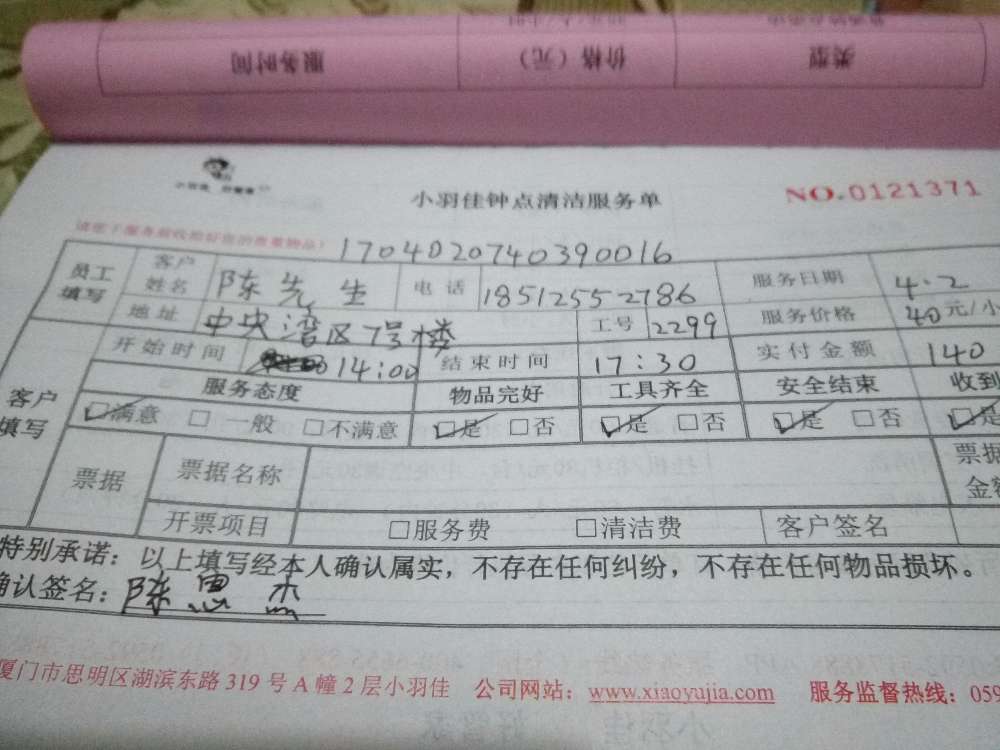 服务时间 价格（元） 类型
小羽佳钟点清洁服务单 NO.0121371
1704020740390016
员工填写 客户姓名 陈先生 电话 18512552786 服务日期 4.2
地址 中央湾区7号楼 工号 2299 服务价格 40元/小
客户填写 开始时间 14:00 结束时间 17:30 实付金额 140
服务态度 物品完好 工具齐全 安全结束 收到
满意 一般 不满意 是 否 是 否 是 否 是
票据 票据名称 票据金额
开票项目 服务费 清洁费 客户签名
特别承诺：以上填写经本人确认属实，不存在任何纠纷，不存在任何物品损坏。
确认签名：陈思杰
厦门市思明区湖滨东路319号A幢2层小羽佳 公司网站：www.xiaoyujia.com 服务监督热线：059